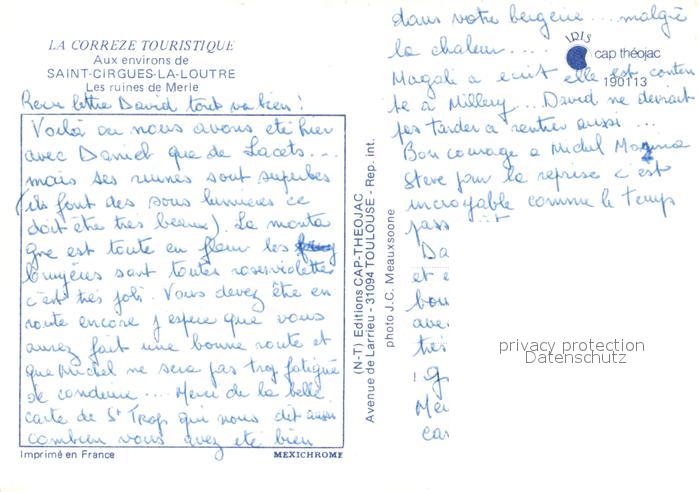 LA CORREZE TOURISTIQUE
Aux environs de
SAINT-CIRGUES-LA-LOUTRE
Les ruines de Merle
Recu lettre David tout va bien !
Voilà ou nous avons eté hier
avec Daniel que de Lacets...
mais ses ruines sont superbes
(ils font des sons lumières ce
doit être très beaux). La monta
gne est toute en fleur les
bruyères sont toutes roses violettes
c'est très joli. Vous devez être en
route encore j espere que vous
aurez fait une bonne route et
que Michel ne sera pas trop fatigué
de conduire.... Merci de la belle
carte de St Trop qui nous dit aussi
combien vous avez eté bien
Imprimé en France
MEXICHROME
(N-T) Editions CAP-THEOJAC
Avenue de Larrieu - 31094 TOULOUSE - Rep. int.
photo J.C. Meauxsoone
dans votre bergerie .... malgré
la chaleur....
IRIS
cap théojac
190113
Magali a ecrit elle est conten
te à Millery... David ne devrait
pas tarder a rentrer aussi ...
Bon courage a Michel
Steve pour la reprise c'est
incroyable comme le temps
pass
Da
et e
bou
ave
très
! G
Mer
car
privacy protection
Datenschutz